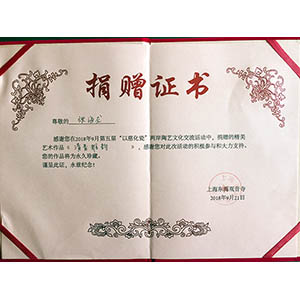 捐赠证书
尊敬的
感谢您在2018年9月第五届“以慈化瓷”两岸陶艺文化交流活动中，捐赠的精美
艺术作品《清香雅韵》，感谢您对此次活动的积极参与和大力支持。
您的作品将为永久珍藏。
谨呈此证，永致纪念！
上海东海观音寺
2018年9月21日